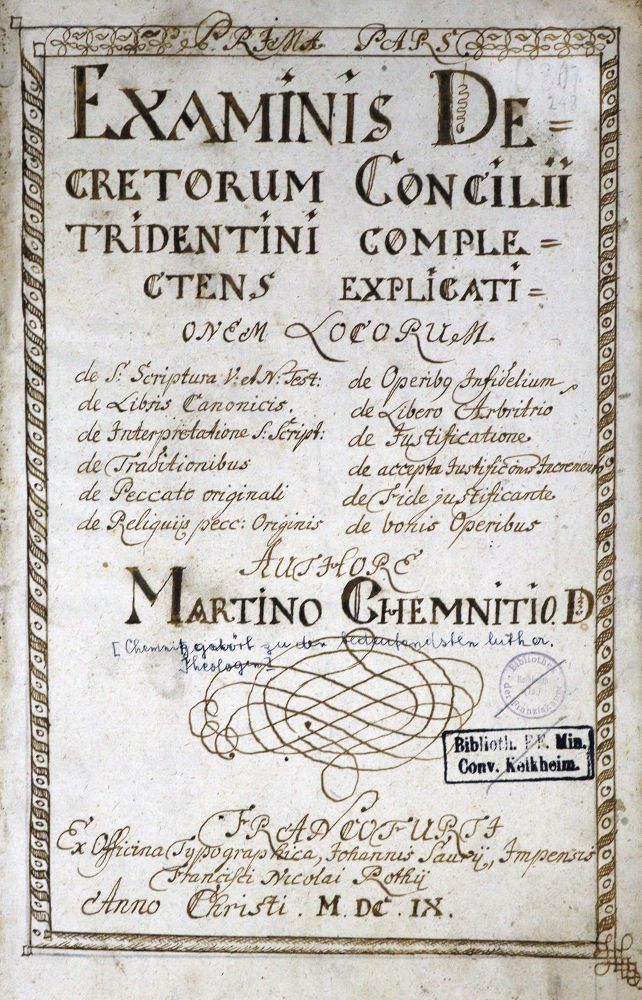 PRIMA PARS
EXAMINIS DE=
CRETORUM CONCILII
TRIDENTINI COMPLE=
CTENS EXPLICATI=
ONEM LOCORUM
de S: Scriptura V: et N: Test:
de Libris Canonicis.
de Interpretatione S: Script:
de Traditionibus
de Peccato originali
de Reliquijs pecc: Originis
de Operibq Infidelium
de Libero Arbritrio
de Justificatione
de accepta Justificōnis Increment
de Fide justificante
de bonis Operibus
AUTHORE
MARTINO CHEMNITIO. D
[Chemnitz gehört zu den bedeutendsten luther.
Theologen]
Bibliothek
Kelkheim
(Ts.)
der Franziskaner
Biblioth. FF. Min.
Conv. Kelkheim.
FRANCOFURTI
Ex Officina Typographica, Johannis Saurij, Impensis
Francisci Nicolai Rothij
Anno Christi. M. DC. IX.